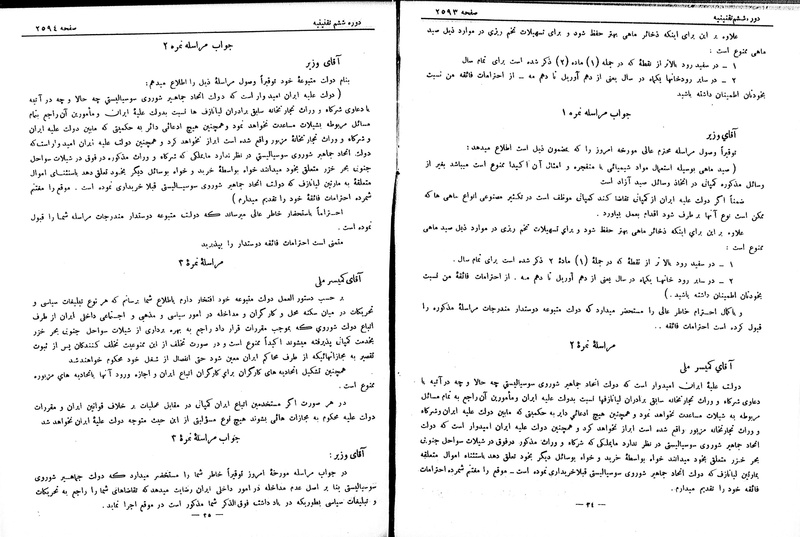 دوره ششم تقنینیه
صفحه ۲۵۹۳
علاوه بر این برای اینکه ذخائر ماهی بهتر حفظ شود و برای تسهیلات تخم ریزی در موارد ذیل صید
ماهی ممنوع است :
۱ – در سفید رود بالاتر از نقطهٔ که در جملهٔ (۱) مادهٔ (۲) ذکر شده است برای تمام سال
۲ – در سایر رودخانها یکماه در سال یعنی از دهم آوریل تا دهم مه – از احترامات فائقه من نسبت
بخودتان اطمینان داشته باشید
جواب مراسله نمره ۱
آقای وزیر
توقیراً وصول مراسلهٔ محترم عالی مورخه امروز را که بمضمون ذیل است اطلاع میدهد:
( صید ماهی بوسیله استعمال مواد شیمیائی یا منفجره و امثال آن اکیداً ممنوع است میباشد بغیر از
وسائل مذکوره کمپانی در اتخاذ وسائل صید آزاد است
ضمناً اگر دولت علیه ایران از کمپانی تقاضا کند کمپانی موظف است در تکثیر مصنوعی انواع ماهی ها که
ممکن است نوع آنها بر طرف شود اقدام بعمل بیاورد .
علاوه بر این برای اینکه ذخائر ماهی بهتر حفظ شود و برای تسهیلات تخم ریزی در موارد ذیل صید ماهی
ممنوع است :
۱ – در سفید رود بالا تر از نقطهٔ که در جملهٔ (۱) مادهٔ ۲ ذکر شده است برای تمام سال .
۲ – در سایر رود خانها یکماه در سال یعنی از دهم آوریل تا دهم مه . از احترامات فائقه من نسبت
بخودتان اطمینان داشته باشید . )
و باکمال احترام خاطر عالی را مستحضر میدارد که دولت متبوعه دوستدار مندرجات مراسلهٔ مذکوره را
قبول کرده است احترامات فائقه . .
مراسلهٔ نمره ۲
آقای کمیسر ملی
دولت علیهٔ ایران امیدوار است که دولت اتحاد جماهیر شوروی سوسیالیستی چه حالا و چه در آتیه با
دعاوی شرکاء و وراث تجارتخانه سابق برادران لیانازفها نسبت بدولت علیه ایران ومأمورین آن راجع به تمام مسائل
مربوطه به شیلات مساعدت نخواهد نمود و همچنین هیچ ادعائی دایر به حکمیتی که مابین دولت علیه ایران وشرکاء
و وراث تجارتخانه مزبور واقع شده است ابراز نخواهد کرد و همچنین دولت علیه ایران امیدوار است که دولت
اتحاد جماهیر شوروی سوسیالیستی در نظر ندارد مایملکی که شرکاء و وراث مذکور درفوق در شیلات سواحل جنوبی
بحر خزر متعلق بخود میدانند خواه بواسطهٔ خرید و خواه بوسائل دیگر بخود تعلق دهد باستثناء اموال متعلقه
بمارتین لیانازف که دولت اتحاد جماهیر شوروی سوسیالیستی قبلاخریداری نموده است – موقع را مغتنم شمرده احترامات
فائقه خود را تقدیم میدارم .
– ۳٤ –
دوره ششم تقنینیه
صفحه ۲۵۹٤
جواب مراسله نمره ۲
آقای وزیر
بنام دولت متبوعهٔ خود توقیراً وصول مراسلهٔ ذیل را اطلاع میدهم :
( دولت علیهٔ ایران امید وار است که دولت اتحاد جماهیر شوروی سوسیالیستی چه حالا و چه در آتیه
با دعاوی شرکاء و وراث تجارتخانه سابق برادران لیانازف ها نسبت بدولت علیهٔ ایران ومأمورین آن راجع بتمام
مسائل مربوطه بشیلات مساعدت نخواهد نمود و همچنین هیچ ادعائی دائر به حکمیتی که مابین دولت علیه ایران
و شرکاء و وراث تجارتخانهٔ مزبور واقع شده است ابراز نخواهد کرد و همچنین دولت علیه ایران امید واراست که
دولت اتحاد جماهیر شوروی سوسیالیستی در نظر ندارد مایملکی که شرکاء و وراث مذکوره در فوق در شیلات سواحل
جنوبی بحر خزر متعلق بخود میدانند خواه بواسطهٔ خرید و خواه بوسائل دیگر بخود تعلق دهد باستثنای اموال
متعلقه به مارتین لیانازف که دولت اتحاد جماهیر شوروی سوسیالیستی قبلا خریداری نموده است . موقع را مغتنم
شمرده احترامات فائقهٔ خود را تقدیم میدارم )
احتراماً باستحضار خاطر عالی میرساند که دولت متبوعه دوستدار مندرجات مراسله شما را قبول
نموده است .
متمنی است احترامات فائقه دوستدار را بپذیرید
مراسلهٔ نمرهٔ ۳
آقای کمیسر ملی
بر حسب دستور العمل دولت متبوعه خود افتخار دارم باطلاع شما برسانم که هر نوع تبلیغات سیاسی و
تحریکات در میان سکنه محل و کارگران و مداخله در امور سیاسی و مذهبی و اجتماعی داخلی ایران از طرف
اتباع دولت شوروی که بموجب مقررات قرار داد راجع به بهره برداری از شیلات سواحل جنوبی بحر خزر
بخدمت کمپانی پذیرفته میشوند اکیداً ممنوع است و در صورت تخلف از این ممنوعیت تخلف کنندگان پس از ثبوت
تقصیر به مجازاتهائیکه از طرف محاکم ایران معین شود حتی انفصال از شغل خود محکوم خواهندشد
همچنین تشکیل اتحادیه های کارگران برای کارگران اتباع ایران و اجازه ورود آنها باتحادیه های مزبوره
ممنوع است .
در هر صورت اگر مستخدمین اتباع ایران کمپانی در مقابل عملیات بر خلاف قوانین ایران و مقررات
دولت علیه محکوم به مجازات هائی بشوند هیچ نوع مسؤلیتی از این حیث متوجه دولت علیهٔ ایران نخواهد شد
جواب مراسله نمرهٔ ۳
آقای وزیر :
در جواب مراسله مورخهٔ امروز توقیراً خاطر شما را مستحضر میدارد که دولت جماهیر شوروی
سوسیالیستی بنا بر اصل عدم مداخله در امور داخلی ایران رضایت میدهد که تقاضاهای شما را راجع به تحریکات
و تبلیغات سیاسی بطوریکه در یاد داشت فوق الذکر شما مذکور است در موقع اجرا نماید .
– ۳۵ –